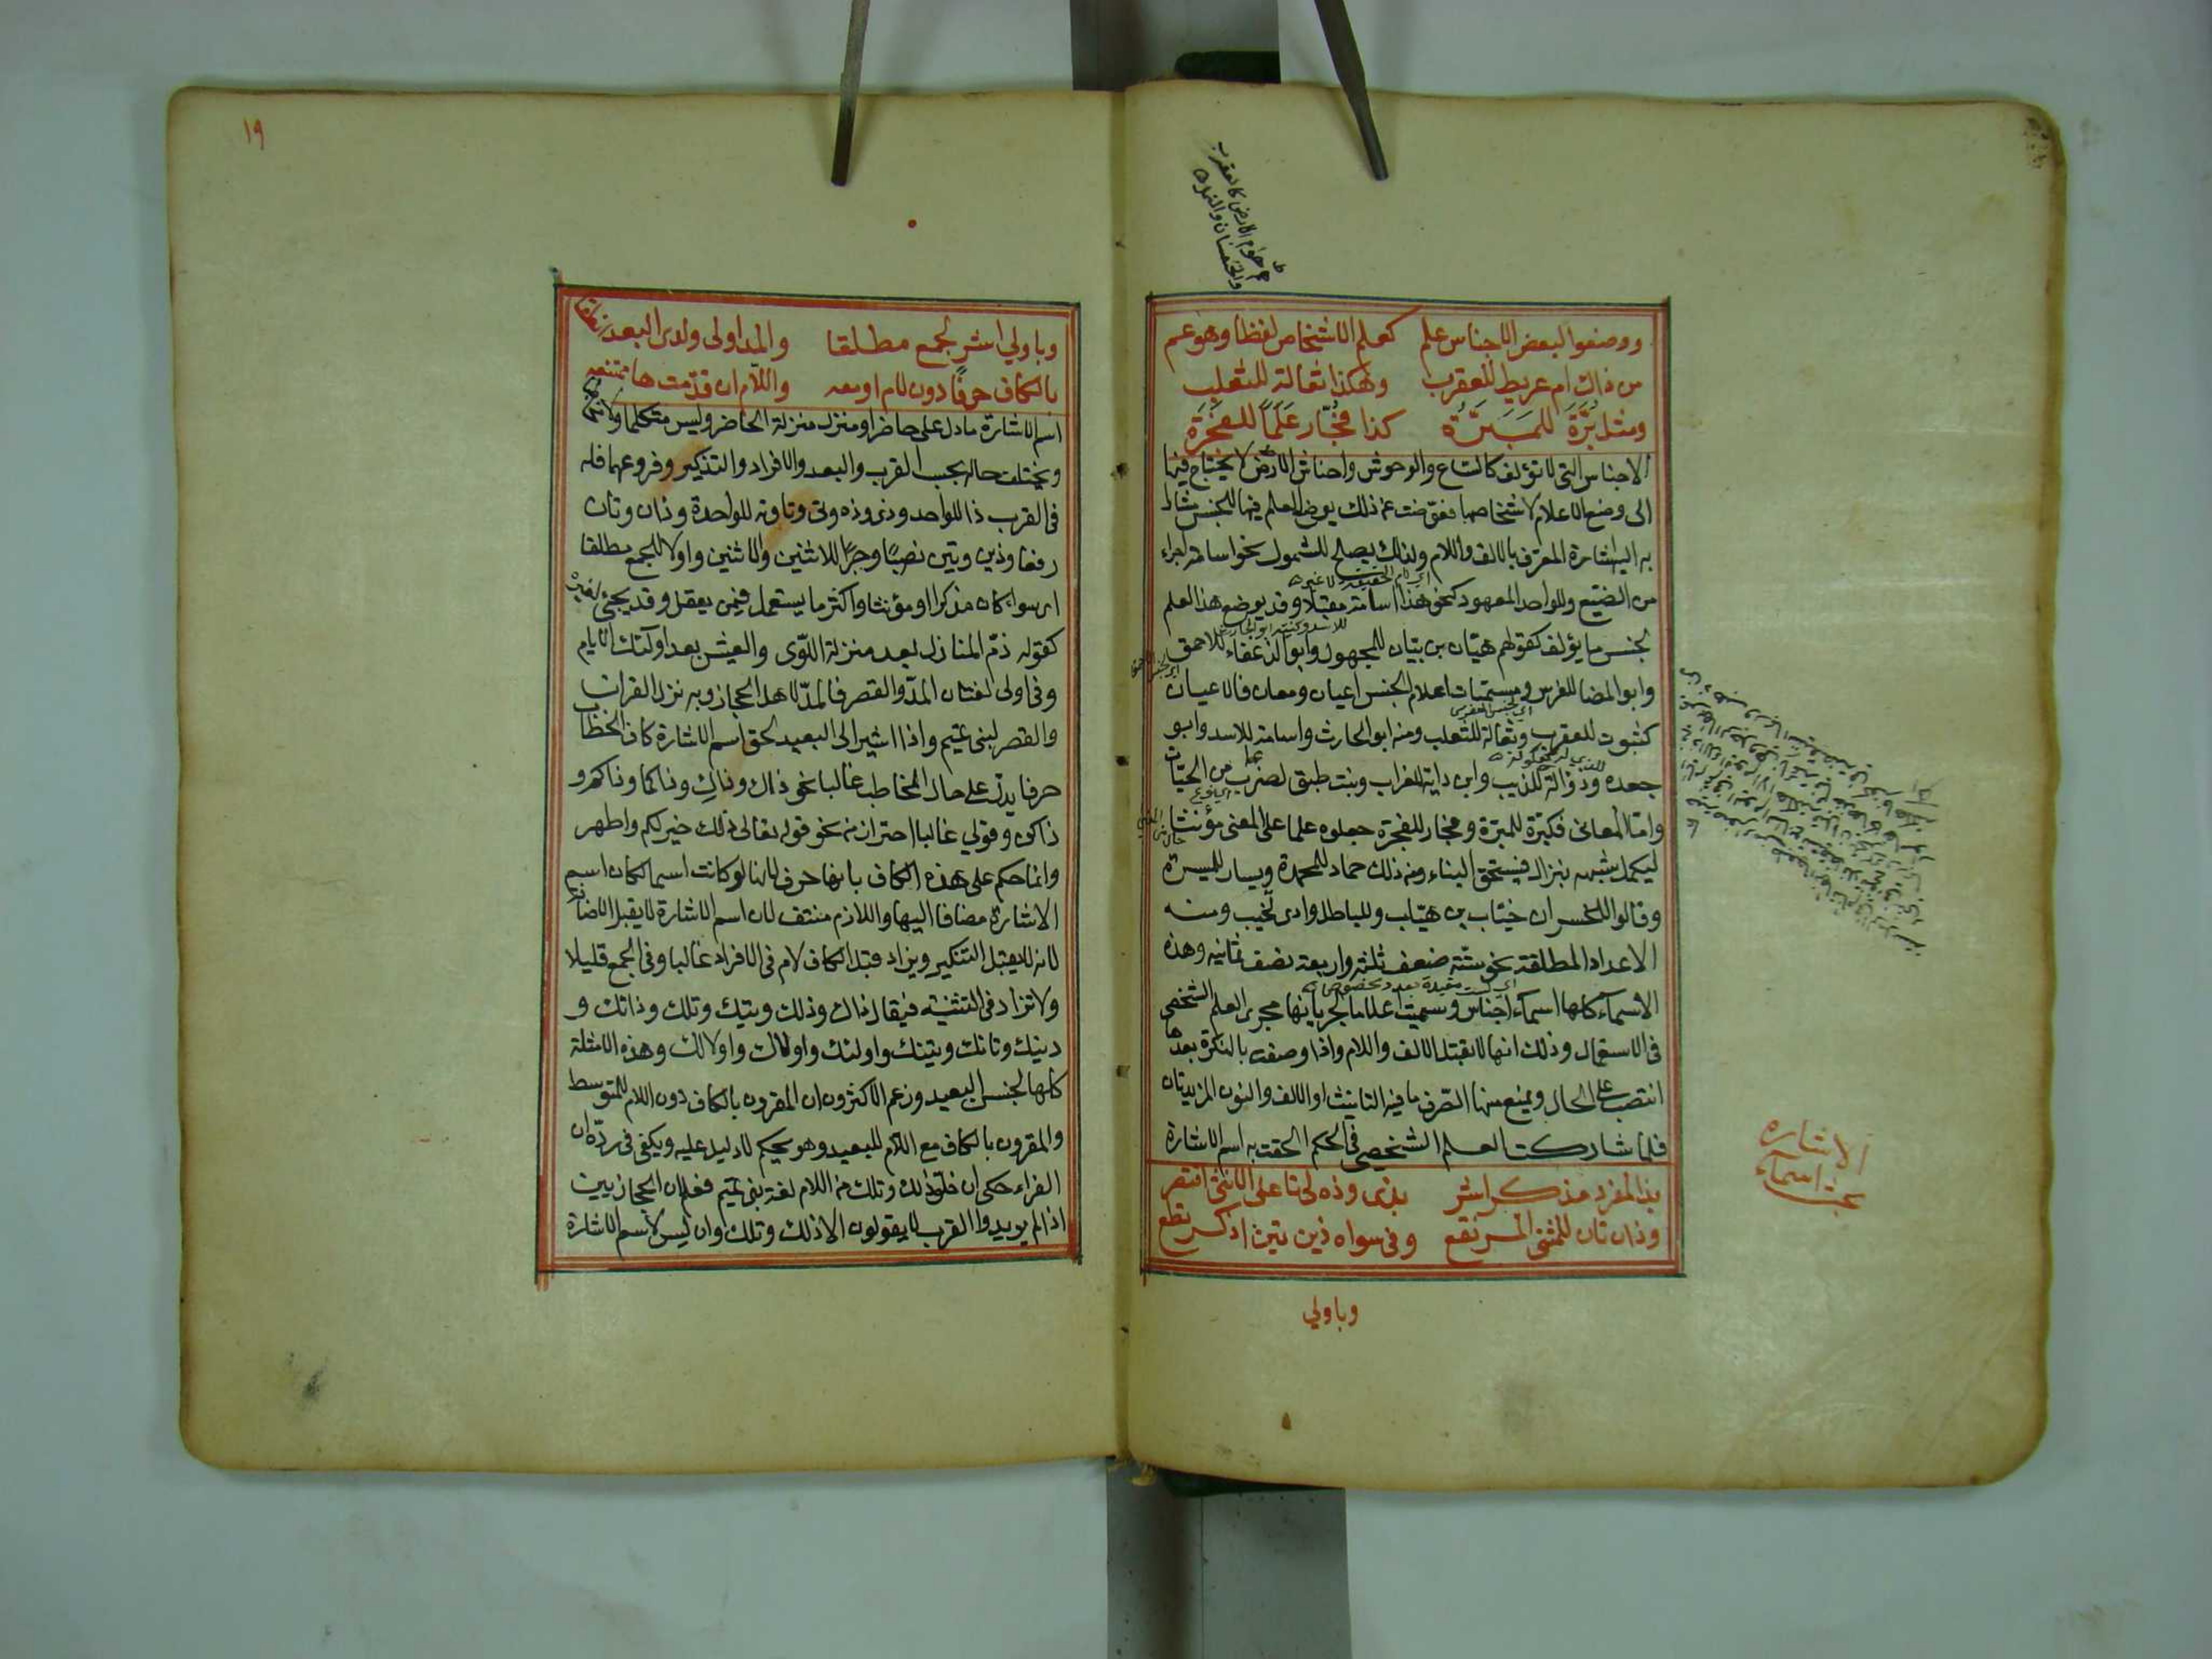 ووضعوا لبعض الاجناس علم كعلم الاشخاص لفظا وهو عم
من ذاك ام عريط للعقرب وهكذا ثعالة للثعلب
ومثله برّة للمبرّة كذا فجّار علماً للفجرة
الاجناس التى لا تؤلف كالسباع والوحوش واحناش الارض لا يحتاج فيها
الى وضع الاعلام لاشخاصها فعوّضت عن ذلك بوضع العلم فيها للجنس مشارا
به اليه اشارة المعرّف بالالف واللام ولذلك يصلح للشمول نحو اسامة اجراء
من الضبع وللواحد المعهود نحو هذا اسامة مقبلا وقد يوضع هذا العلم
لجنس ما يؤلف كقولهم هيّان بن بيّان للمجهول وابو الدغفاء للاحمق
وابو المضا للفرس ومسميات اعلام الجنس اعيان ومعان فالاعيان
كشبوت للعقرب وثعالة للثعلب ومنه ابو الحارث واسامة للاسد وابو
جعده وذوالة للذيب وابن داية للغراب وبنت طبق لضرب من الحيّات
وامّا المعانى فكبرّة للمبرّة وفجار للفجرة جعلوه علما على المعنى مؤنثا
ليكمل شبهه بنزال فيستحق البناء ومن ذلك حماد للمحمدة ويسار للميسرة
وقالوا للخسران خيّاب بن هيّاب وللباطل وادى تخيب ومنه
الاعداد المطلقة نحو ستّة ضعف ثلثة واربعة نصف ثمانيه وهذه
الاسماء كلها اسماء اجناس وسميت اعلاما لجريانها مجرى العلم الشخصى
فى الاستعمال وذلك انها لا تقبل الالف واللام واذا وصفت بالنكرة بعدها
انتصب على الحال ويمنع منها الصّرف ما فيه التانيث او الالف والنون المزيدتان
فلما شاركت العلم الشخصى فى الحكم الحقت به اسم الاشارة
بذا لمفرد مذكر اشر بذى وذه تى تا على الانثى اقتصر
وذان تان للمثنى المرتفع وفى سواه ذين تين اذكر تطع
وباولي
بحث اسماء
الاشاره
١٩
وباولى اشر لجمع مطلقا والمد اولى ولدى البعد انطقا
بالكاف حرفاً دون لام او معه واللام ان قدّمت ها ممتنعه
اسم الاشارة ما دل على حاضر او منزل منزلة الحاضر وليس متكلما ولا مخاطبا
ويختلف حاله بحسب القرب والبعد والافراد والتذكير وفروعهما فله
فى القرب ذا للواحد وذى وذه وتى وتا وته للواحدة وذان وتان
رفعا وذين وتين نصبًا وجرًا للاثنين والاثنتين واولا للجمع مطلقا
اى سواء كان مذكرا او مؤنثا واكثر ما يستعمل فيمن يعقل وقد يجئ لغيره
كقوله ذمّ المنازل بعد منزلة اللّوى والعيش بعد اولئك الايام
وفى اولى لغتان المدّ والقصر فالمدّ لاهل الحجاز وبه نزل القران
والقصر لبنى تميم واذا اشير الى البعيد لحق اسم الاشارة كاف الخطاب
حرفا يدل على حال المخاطب غالبا نحو ذاك وذاكِ وذاكما وذاكم و
ذاكن وقولي غالبا احتراز من نحو قوله تعالى ذلك خير لكم واطهر
وانما حكم على هذه الكاف بانها حرف لانها لو كانت اسما لكان اسم
الاشارة مضافا اليها واللازم منتف لان اسم الاشارة لا يقبل الاضافة
لانه لا يقبل التنكير ويزاد قبل الكاف لام فى الافراد غالبا وفى الجمع قليلا
ولا تزاد فى التثنيه فيقال ذاك وذلك وتيك وتلك وذانك و
ذينك وتانك وتينك واولئك واولاك واولالك وهذه الامثلة
كلها لجنس البعيد وزعم الاكثرون ان المقرون بالكاف دون اللام للمتوسط
والمقرون بالكاف مع اللام للبعيد وهو تحكم لا دليل عليه ويكفى فى ردّه ان
الفراء حكى ان خلوّ ذلك وتلك من اللام لغة بنى تميم فعلمان الحجازيين
اذا لم يريدوا القرب لا يقولون الا ذلك وتلك وان ليس لاسم الاشارة